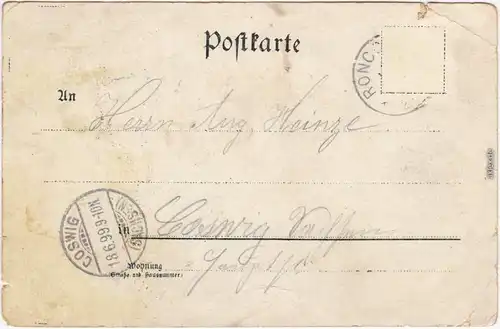 Postkarte
RONC
An
Herrn Aug. Heinze
COSWIG
18.6.99.9-10N.
(SACHSEN)
in Coswig Sachsen
Wohnung
(Straße und Hausnummer)